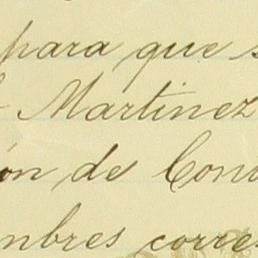 para que s
Martinez
ón de Con
mbres corres